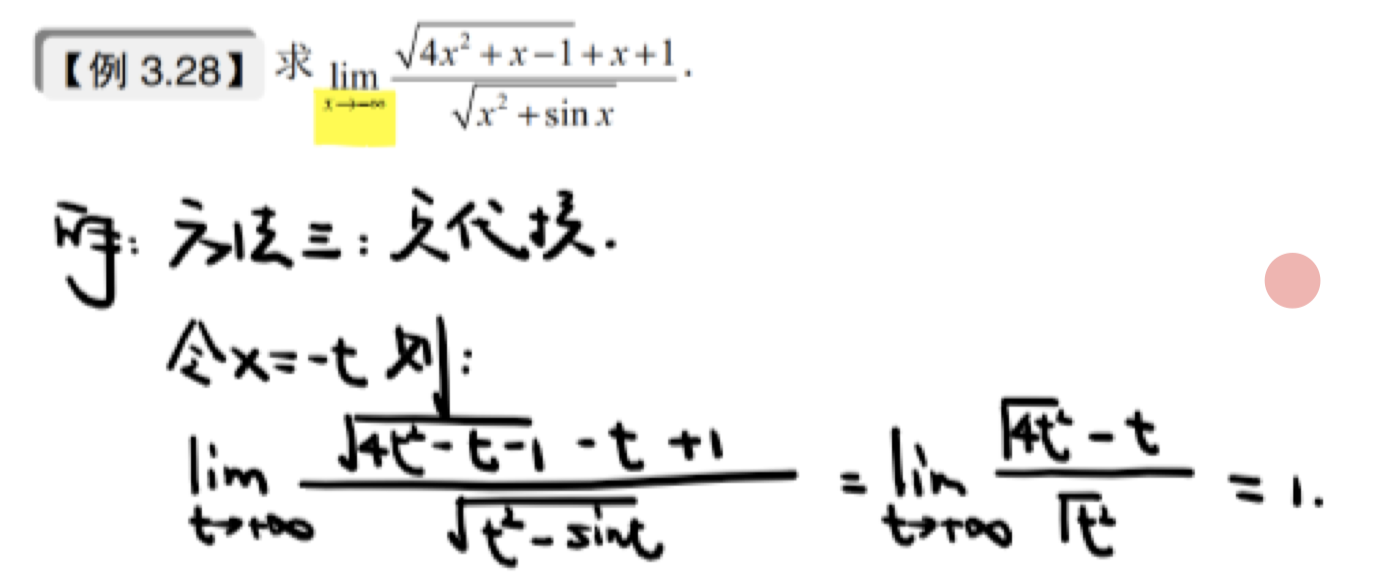 【例 3.28】 求 lim x→-∞ (√(4x²+x-1)+x+1)/√(x²+sin x).
解: 方法三: 负代换.
令x=-t 则:
lim t→+∞ (√(4t²-t-1) -t +1)/√(t²-sint) = lim t→+∞ (√4t² -t)/√t² = 1.